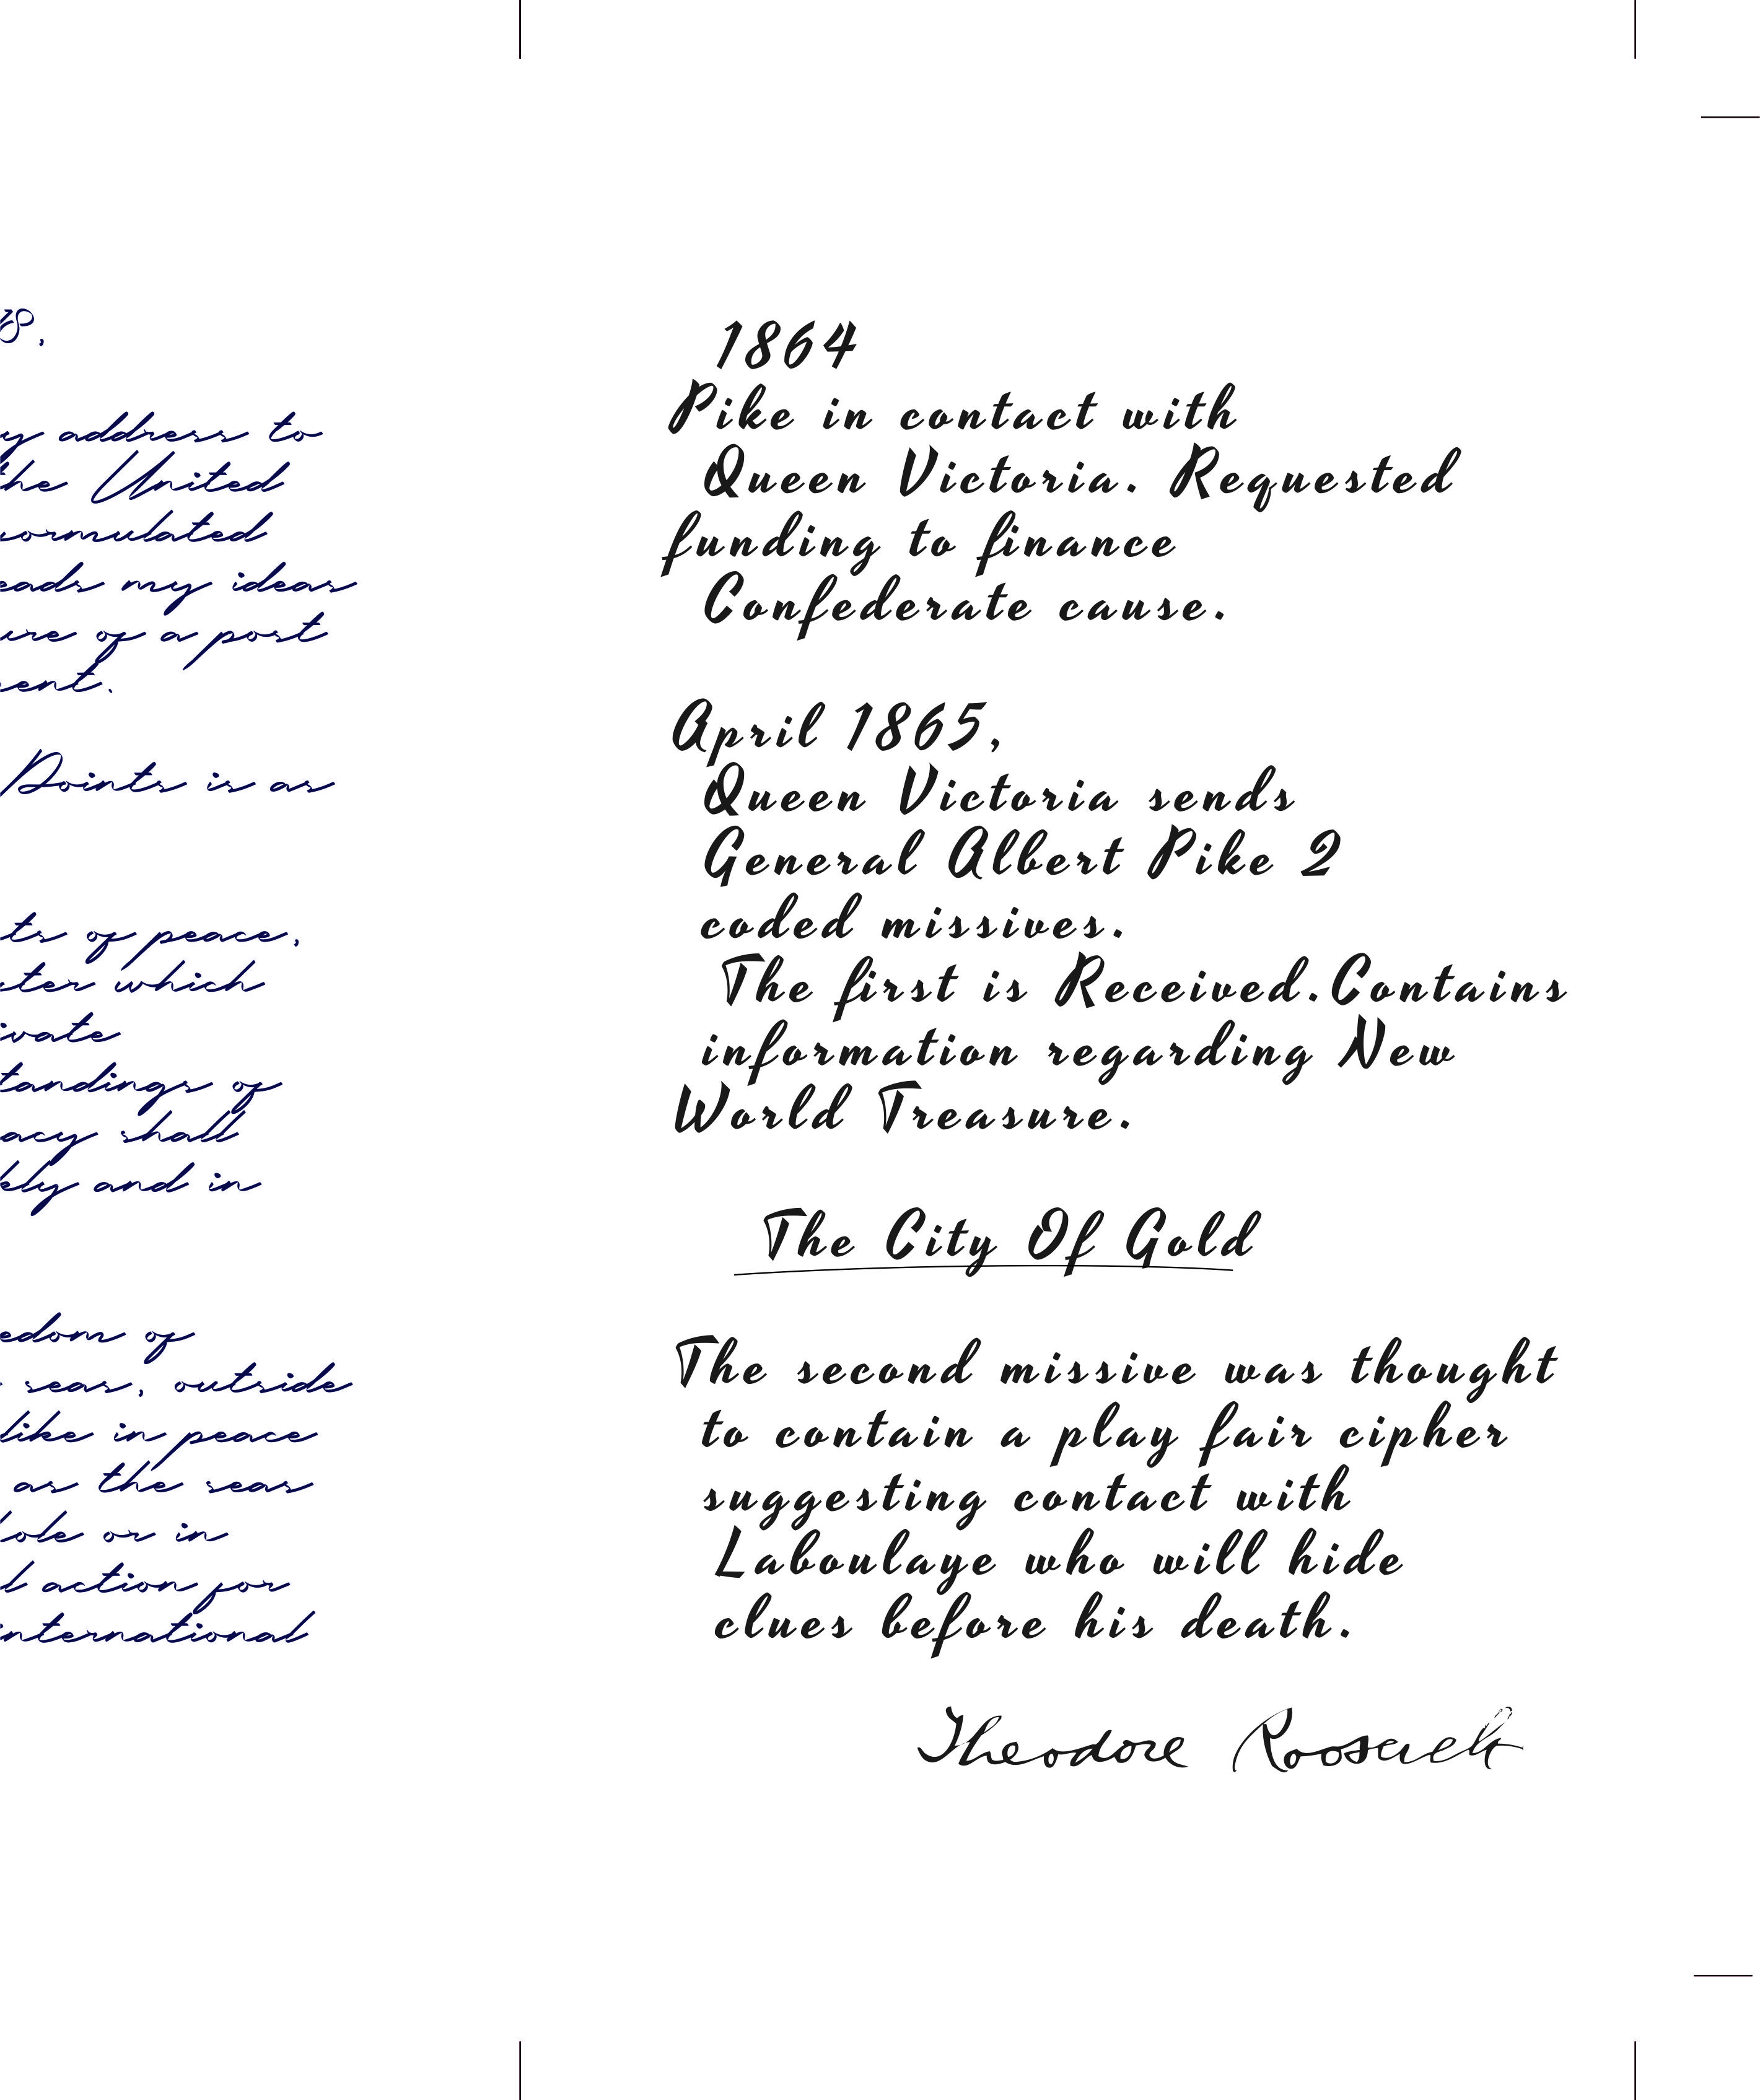 8,
address to
the United
ormulated
my ideas
of a post
Points is as
of peace,
which
standings of
shall
and in
of
seas, outside
like in peace
as the seas
or in
action for
international
1864
Pike in contact with
Queen Victoria. Requested
funding to finance
Confederate cause.
April 1865,
Queen Victoria sends
General Albert Pike 2
coded missives.
The first is Received.Contains
information regarding New
World Treasure.
The City Of Gold
The second missive was thought
to contain a play fair cipher
suggesting contact with
Laboulaye who will hide
clues before his death.
Theodore Roosevelt